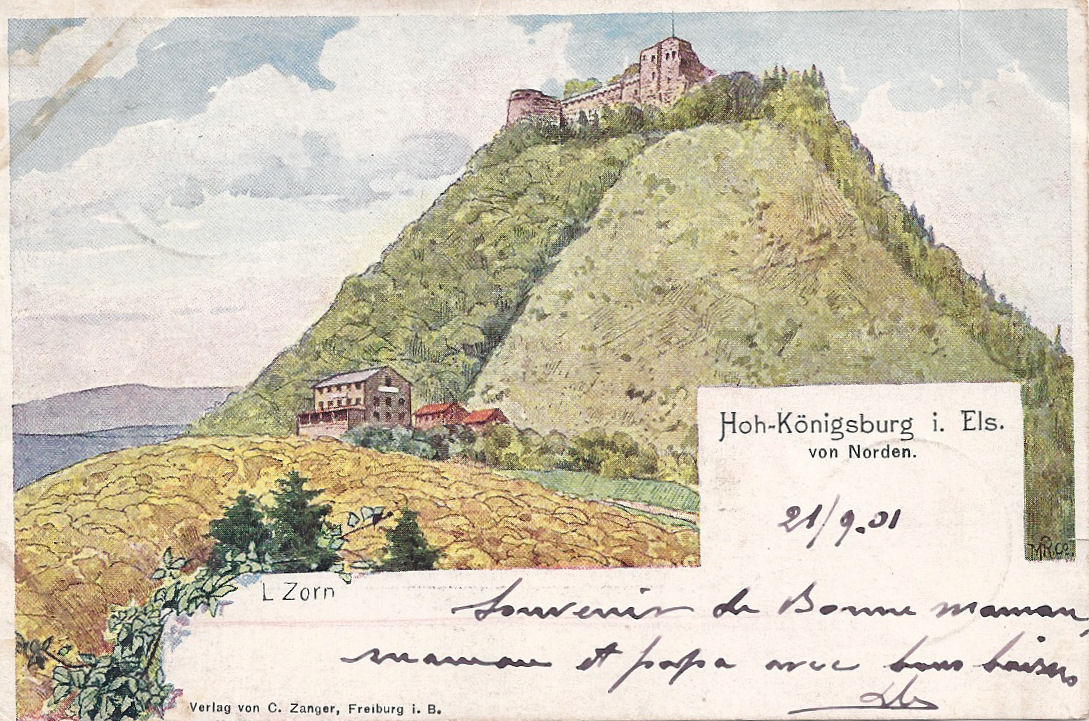 Hoh-Königsburg i. Els.
von Norden.
21/9.01
M.R.Co.
L Zorn
Souvenir de Bonne maman,
maman et papa avec bons baisers
Verlag von C. Zanger, Freiburg i. B.